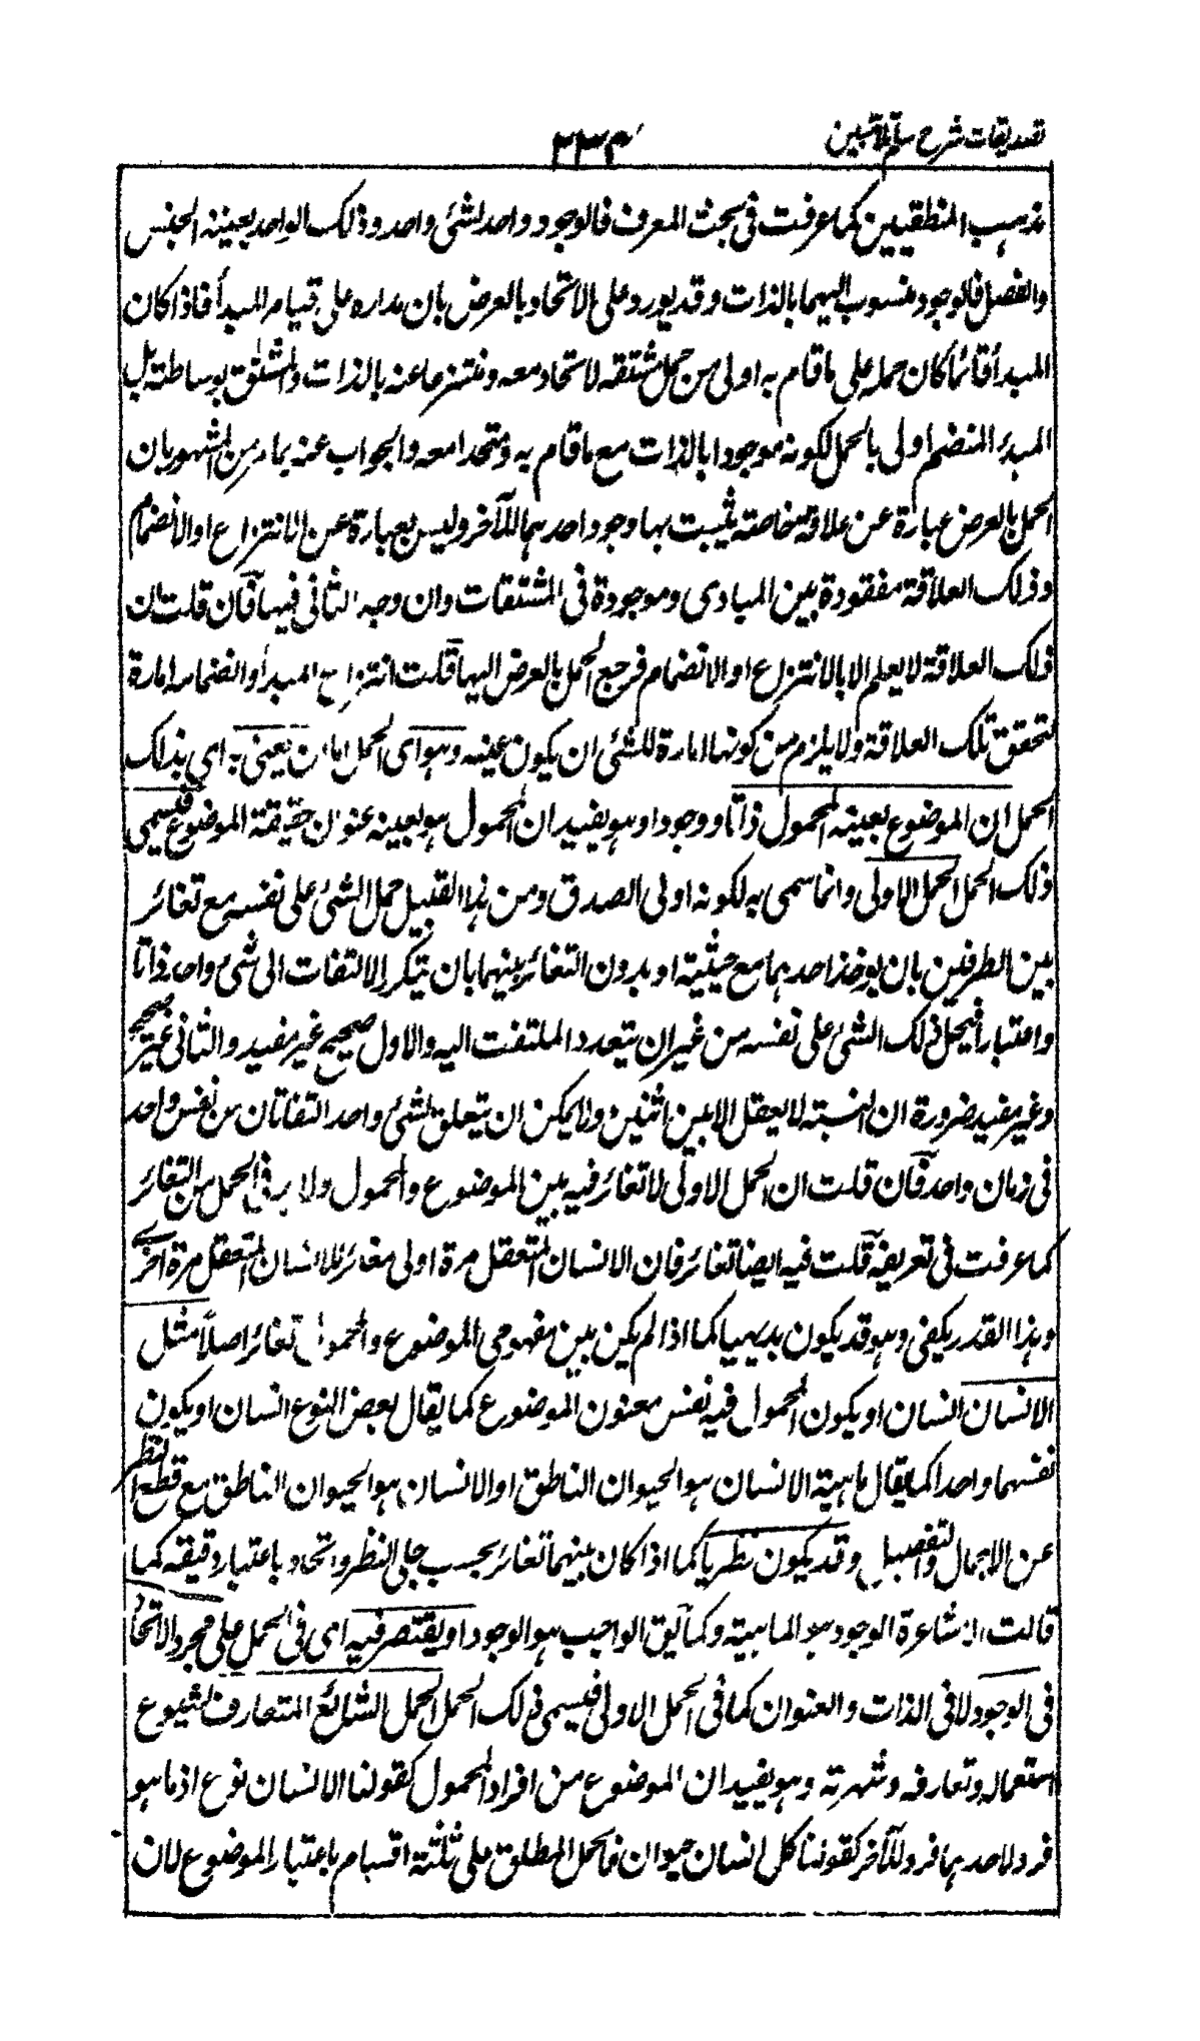 تصديقات شرح سلم ملا مبين
٢٣٤
مذهب المنطقيين كما عرفت فى بحث المعرف فالوجود واحد لشئ واحد وذلك الواحد بعينه الجنس
والفصل فالوجود منسوب اليهما بالذات وقد يورد على الاتحاد بالعرض بان مداره على قيام المبدأ فاذا كان
المبدأ قائما كان حمله على ما قام به اولى من حمل مشتقه لاتحاده معه ومنتزعا عنه بالذات والمشتق بوساطته بل
المبدء المنضم اولى بالحمل لكونه موجودا بالذات مع ما قام به ومتحدا معه والجواب عنه بما مر من المشهور بان
الحمل بالعرض عبارة عن علاقة خاصة يثبت بها وجود احدهما للآخر وليس بعبارة عن الانتزاع او الانضمام
وذلك العلاقة مفقودة بين المبادى وموجودة فى المشتقات وان وجد الثانى فيها فان قلت ان
ذلك العلاقة لا يعلم الا بالانتزاع او الانضمام فرجع الحمل بالعرض اليها قلت انتزاع المبدأ وانضمامه امارة
لتحقق تلك العلاقة ولا يلزم من كونها امارة للشئ ان يكون عينه وهو اى الحمل اما ان يعنى به اى بذلك
الحمل ان الموضوع بعينه المحمول ذاتا ووجودا وهو يفيد ان المحمول هو بعينه عنوان حقيقة الموضوع فيسمى
ذلك الحمل الحمل الاولى وانما سمى به لكونه اولى الصدق ومن هذا القبيل حمل الشئ على نفسه مع تغائر
بين الطرفين بان يوخذ احدهما مع حيثية او بدون التغائر بينهما بان يتكرر الالتفات الى شئ واحد ذاتا
واعتبارا فيحمل ذلك الشئ على نفسه من غير ان يتعدد الملتفت اليه والاول صحيح غير مفيد والثانى غير صحيح
وغير مفيد ضرورة ان النسبة لا يعقل الا بين اثنين ولا يمكن ان يتعلق لشئ واحد التفاتان من نفس واحد
فى زمان واحد فان قلت ان الحمل الاولى لا تغائر فيه بين الموضوع والمحمول ولا بد فى الحمل من التغائر
كما عرفت فى تعريفه قلت فيه ايضا تغائر فان الانسان المتعقل مرة اولى مغائر للانسان المتعقل مرة اخرى
وهذا القدر يكفى وهو قد يكون بديهيا كما اذا لم يكن بين مفهومى الموضوع والمحمول تغائر اصلا مثل
الانسان انسان او يكون المحمول فيه نفس معنون الموضوع كما يقال بعض النوع انسان او يكون
نفسهما واحدا كما يقال ماهية الانسان هو الحيوان الناطق او الانسان هو الحيوان الناطق مع قطع النظر
عن الاجمال والتفصيل وقد يكون نظريا كما اذا كان بينهما تغائر بحسب جلى النظر واتحاد باعتبار دقيقه كما
قالت الاشاعرة الوجود هو الماهية وكما يق الواجب هو الوجود او يقتصر فيه اى فى الحمل على مجرد الاتحاد
فى الوجود لا فى الذات والعنوان كما فى الحمل الاولى فيسمى ذلك الحمل الحمل الشائع المتعارف لشيوع
استعماله وتعارفه وشهرته وهو يفيد ان الموضوع من افراد المحمول كقولنا الانسان نوع اذ ما هو
فرد لاحدهما فرد للآخر كقولنا كل انسان حيوان فالحمل المطلق على ثلثة اقسام باعتبار الموضوع لان